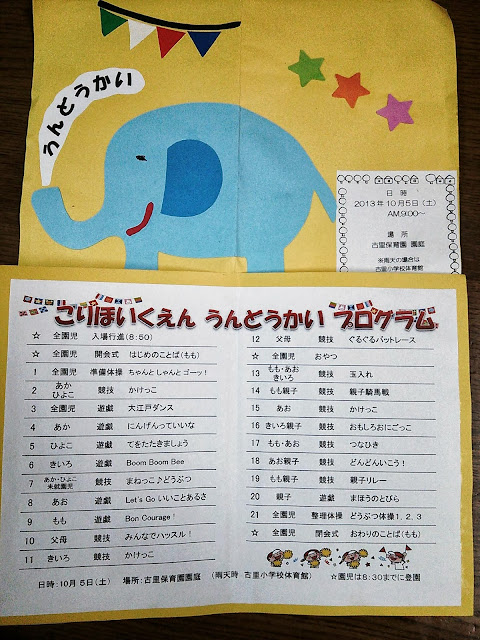 うんどうかい
日 時
2013年10月5日（土）
AM,9:00～
場 所
古里保育園 園庭
※雨天の場合は
古里小学校体育館
こりほいくえん うんどうかい プログラム
☆ 全園児 入場行進（8：50）
☆ 全園児 開会式 はじめのことば（もも）
1 全園児 準備体操 ちゃんとしゃんとゴーッ！
2 あか ひよこ 競技 かけっこ
3 全園児 遊戯 大江戸ダンス
4 あか 遊戯 にんげんっていいな
5 ひよこ 遊戯 てをたたきましょう
6 きいろ 遊戯 Boom Boom Bee
7 あか・ひよこ 未就園児 競技 まねっこ♪どうぶつ
8 あお 遊戯 Let's Go いいことあるさ
9 もも 遊戯 Bon Courage！
10 父母 競技 みんなでハッスル！
11 きいろ 競技 かけっこ
12 父母 競技 ぐるぐるバットレース
☆ 全園児 おやつ
13 もも・あお きいろ 競技 玉入れ
14 もも親子 競技 親子騎馬戦
15 あお 競技 かけっこ
16 きいろ親子 競技 おもしろおにごっこ
17 もも・あお 競技 つなひき
18 あお親子 競技 どんどんいこう！
19 もも親子 競技 親子リレー
20 親子 遊戯 まほうのとびら
21 全園児 整理体操 どうぶつ体操1．2．3
☆ 全園児 閉会式 おわりのことば（もも）
日時：10月5日（土） 場所：古里保育園園庭 （雨天時 古里小学校体育館） ☆園児は8：30までに登園